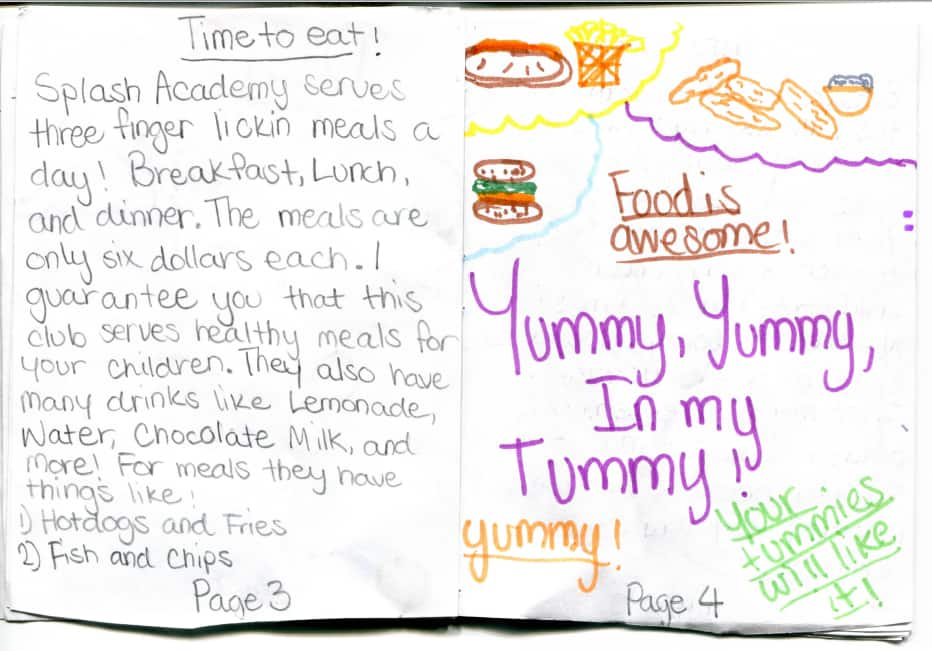 Time to eat!
Splash Academy serves
three finger lickin meals a
day! Breakfast, Lunch,
and dinner. The meals are
only six dollars each. I
guarantee you that this
club serves healthy meals for
your children. They also have
many drinks like Lemonade,
Water, Chocolate Milk, and
more! For meals they have
things like!
1) Hotdogs and Fries
2) Fish and Chips
Page 3
Food is
awesome!
Yummy, Yummy,
In my
Tummy!
yummy!
your
tummies
will like
it!
Page 4